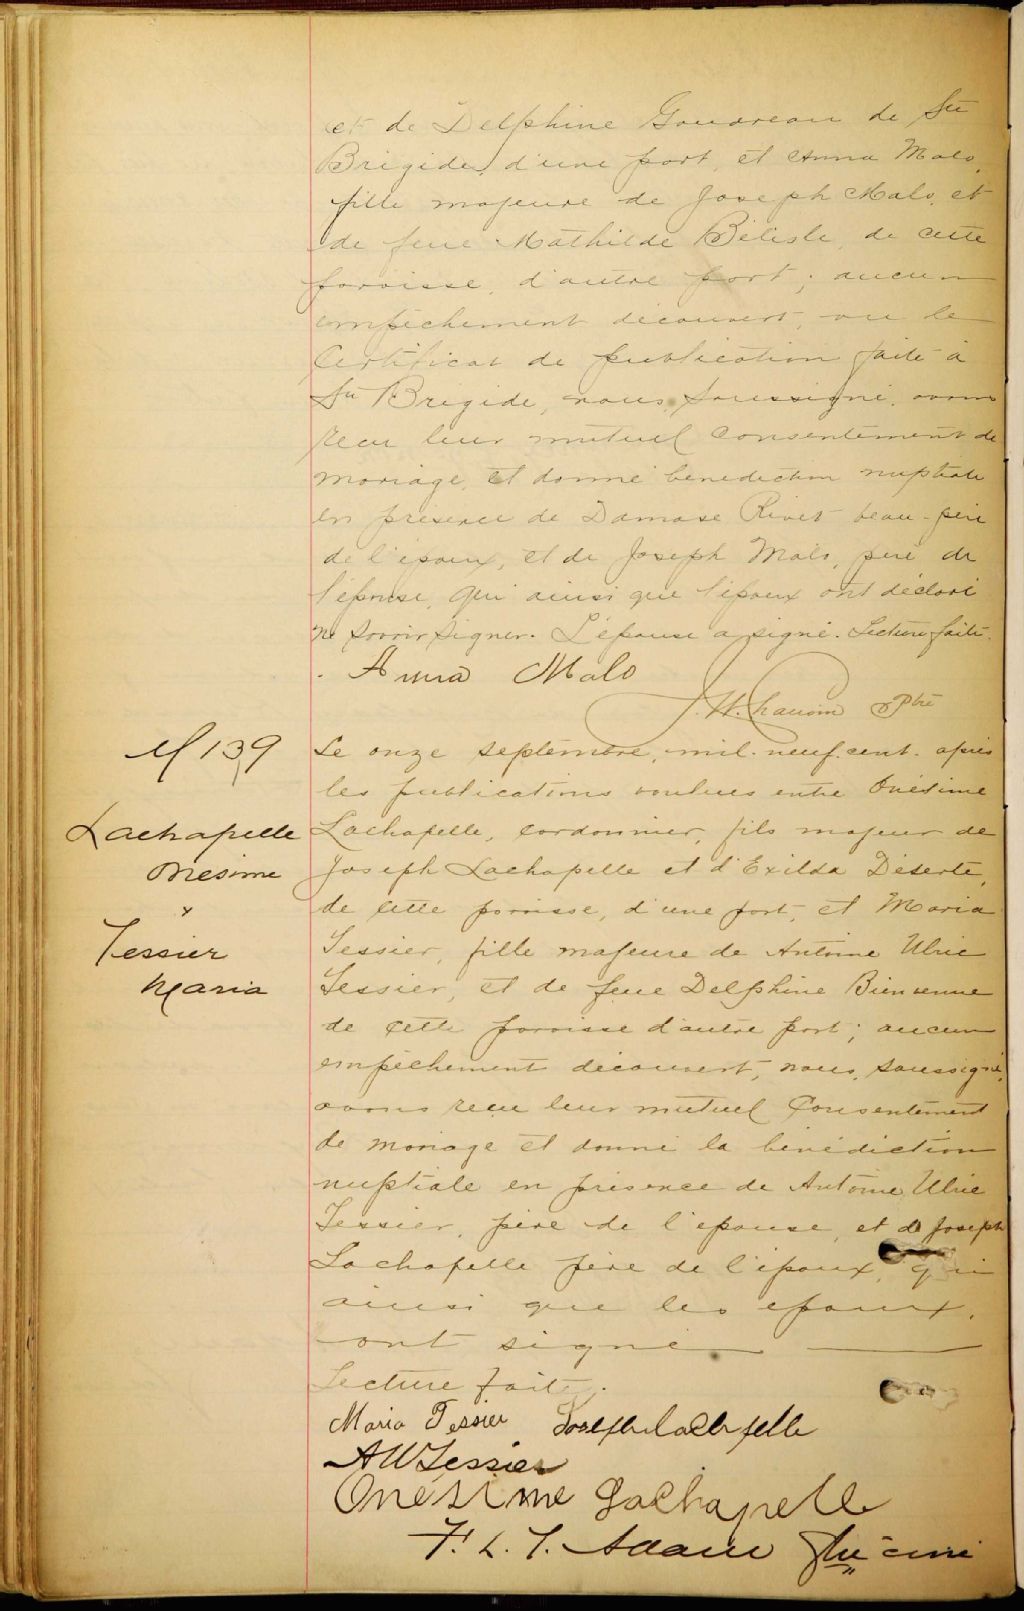 et de Delphine Goudreau de Ste
Brigide, d'une part, et Anna Malo,
fille majeure de Joseph Malo, et
de feue Mathilde Bélisle, de cette
paroisse, d'autre part; aucun
empêchement découvert, vu le
Certificat de publication faite à
Ste Brigide, nous, soussigné, avons
recu leur mutuel consentement de
mariage, et donné bénédiction nuptiale
en présence de Damase Rivet beau-père
de l'époux, et de Joseph Malo, père de
l'épouse, qui ainsi que l'époux ont déclaré
ne savoir signer. L'épouse a signé. Lecture faite.
Anna Malo
Ptre
M 139
Lachapelle
Onesime
&
Tessier
Maria
Le onze septembre, mil-neuf-cent-après
les publications voulues entre Onésime
Lachapelle, cordonnier, fils majeur de
Joseph Lachapelle et d'Exilda Déserte,
de cette paroisse, d'une part, et Maria
Tessier, fille majeure de Antoine Ulric
Tessier, et de feue Delphine Bienvenue
de cette paroisse d'autre part; aucun
empêchement découvert, nous, soussigné,
avons recu leur mutuel Consentement
de mariage et donné la bénédiction
nuptiale en présence de Antoine Ulric
Tessier, père de l'épouse, et de Joseph
Lachapelle père de l'époux, qui
ainsi que les époux,
ont signé
Lecture faite.
Maria Tessier Joseph Lachapelle
AUTessier
Onésime Lachapelle
F. L. T. Adam Ptre curé